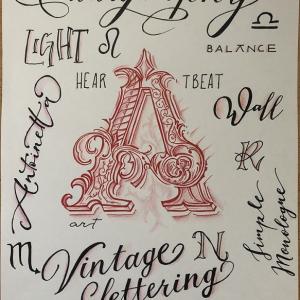 Calligraphy
LIGHT
BALANCE
HEARTBEAT
Antoinetta
A
Wall
R
art
Simple
Monologue
N
Vintage
Lettering